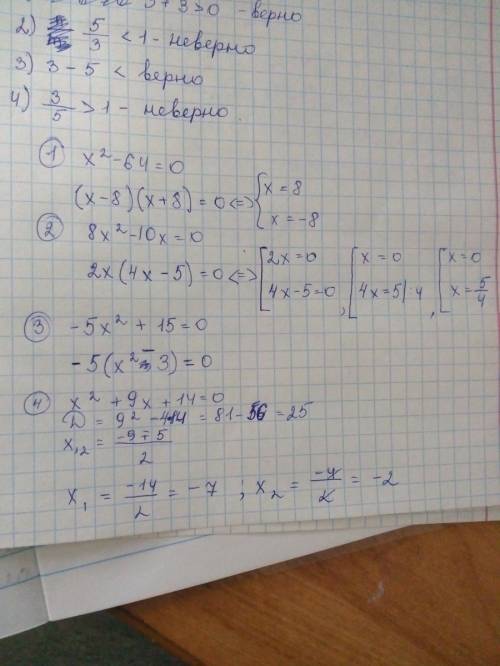 5 + 3 > 0 - верно
2) 5/3 < 1 - неверно
3) 3 - 5 < верно
4) 3/5 > 1 - неверно
① x² - 64 = 0
(x - 8)(x + 8) = 0 <=> { x = 8
x = -8
② 8x² - 10x = 0
2x(4x - 5) = 0 <=> [ 2x = 0 4x - 5 = 0 , [ x = 0 4x = 5 | :4 , [ x = 0 x = 5/4
③ -5x² + 15 = 0
-5(x² - 3) = 0
④ x² + 9x + 14 = 0
D = 9² - 4·14 = 81 - 56 = 25
x₁,₂ = (-9 ∓ 5)/2
x₁ = -14/2 = -7 ; x₂ = -4/2 = -2